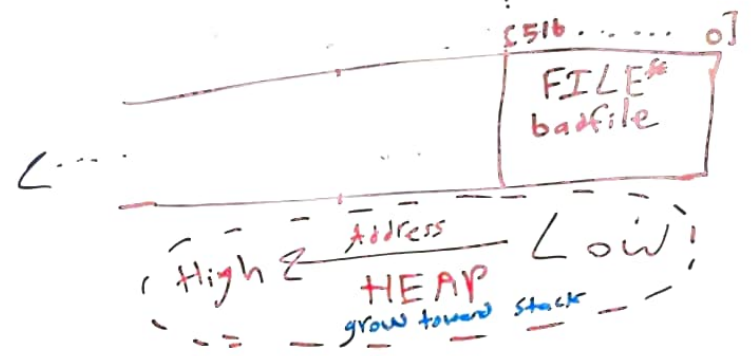 [516 ...... 0]
FILE*
badfile
Address
High Low
HEAP
grow toward stack